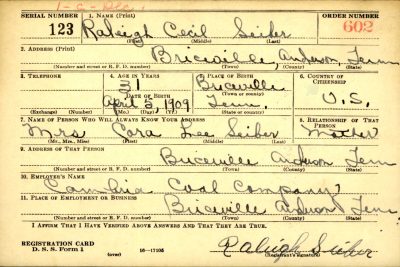 1-a-Dec.
SERIAL NUMBER 1. NAME (Print) ORDER NUMBER
123 Raleigh Cecil Seiber 602
(First) (Middle) (Last)
2. ADDRESS (Print)
Briceville, Anderson, Tenn
(Number and street or R. F. D. number) (Town) (County) (State)
3. TELEPHONE 4. AGE IN YEARS 5. PLACE OF BIRTH 6. COUNTRY OF CITIZENSHIP
31 Briceville
DATE OF BIRTH (Town or county)
April 5, 1909 Tenn. U.S.
(Exchange) (Number) (Mo.) (Day) (Yr.) (State or country)
7. NAME OF PERSON WHO WILL ALWAYS KNOW YOUR ADDRESS 8. RELATIONSHIP OF THAT PERSON
Mrs Cora Lee Seiber Mother
(Mr., Mrs., Miss) (First) (Middle) (Last)
9. ADDRESS OF THAT PERSON
Briceville Anderson Tenn
(Number and street or R. F. D. number) (Town) (County) (State)
10. EMPLOYER'S NAME
Cambria Coal Company
11. PLACE OF EMPLOYMENT OR BUSINESS
Briceville Anderson Tenn
(Number and street or R. F. D. number) (Town) (County) (State)
I AFFIRM THAT I HAVE VERIFIED ABOVE ANSWERS AND THAT THEY ARE TRUE.
REGISTRATION CARD
D. S. S. Form 1 (over) 16—17105 Raleigh Seiber
(Registrant's signature)